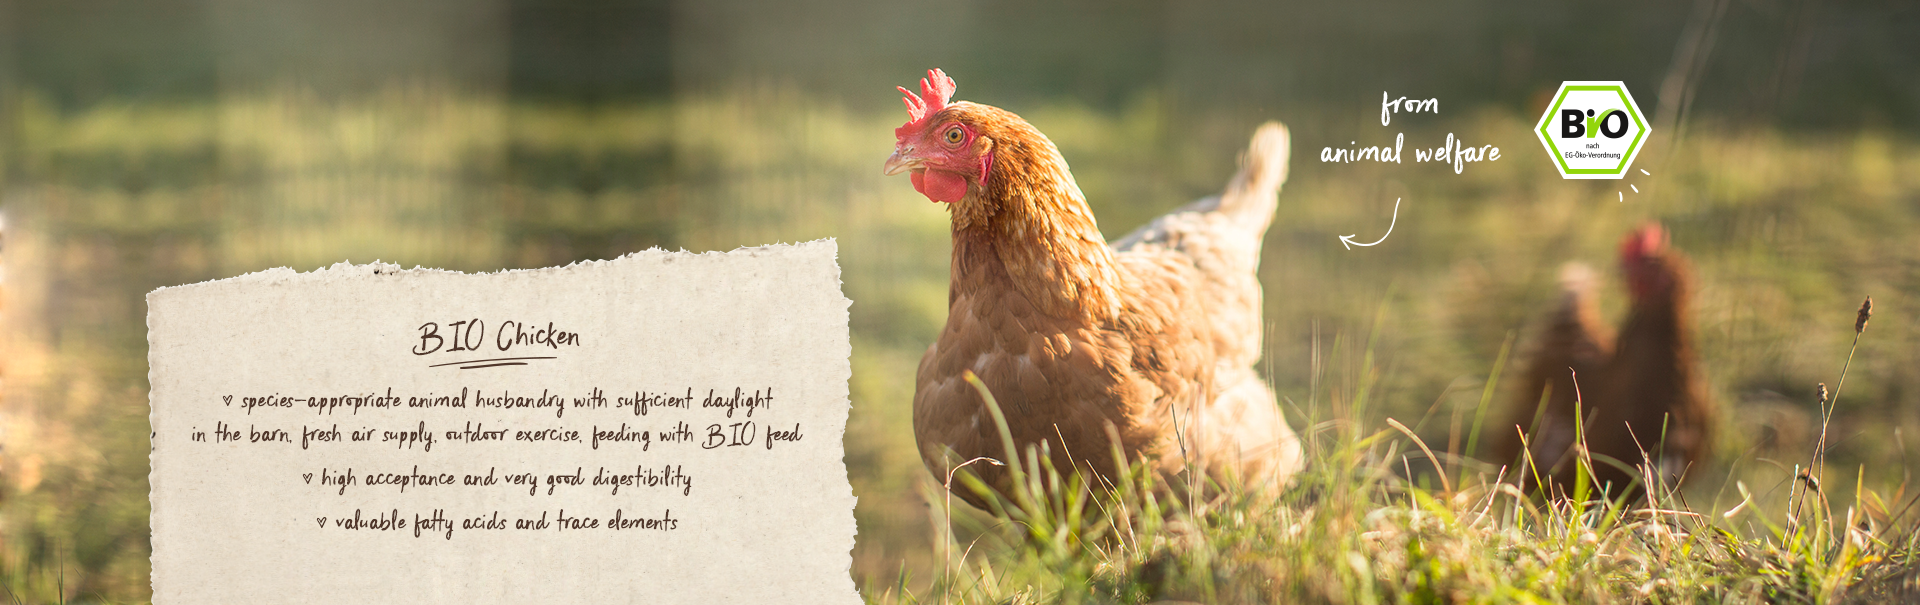 BIO Chicken
♡ species-appropriate animal husbandry with sufficient daylight
in the barn, fresh air supply, outdoor exercise, feeding with BIO feed
♡ high acceptance and very good digestibility
♡ valuable fatty acids and trace elements
from
animal welfare
BIO
nach
EG-Öko-Verordnung